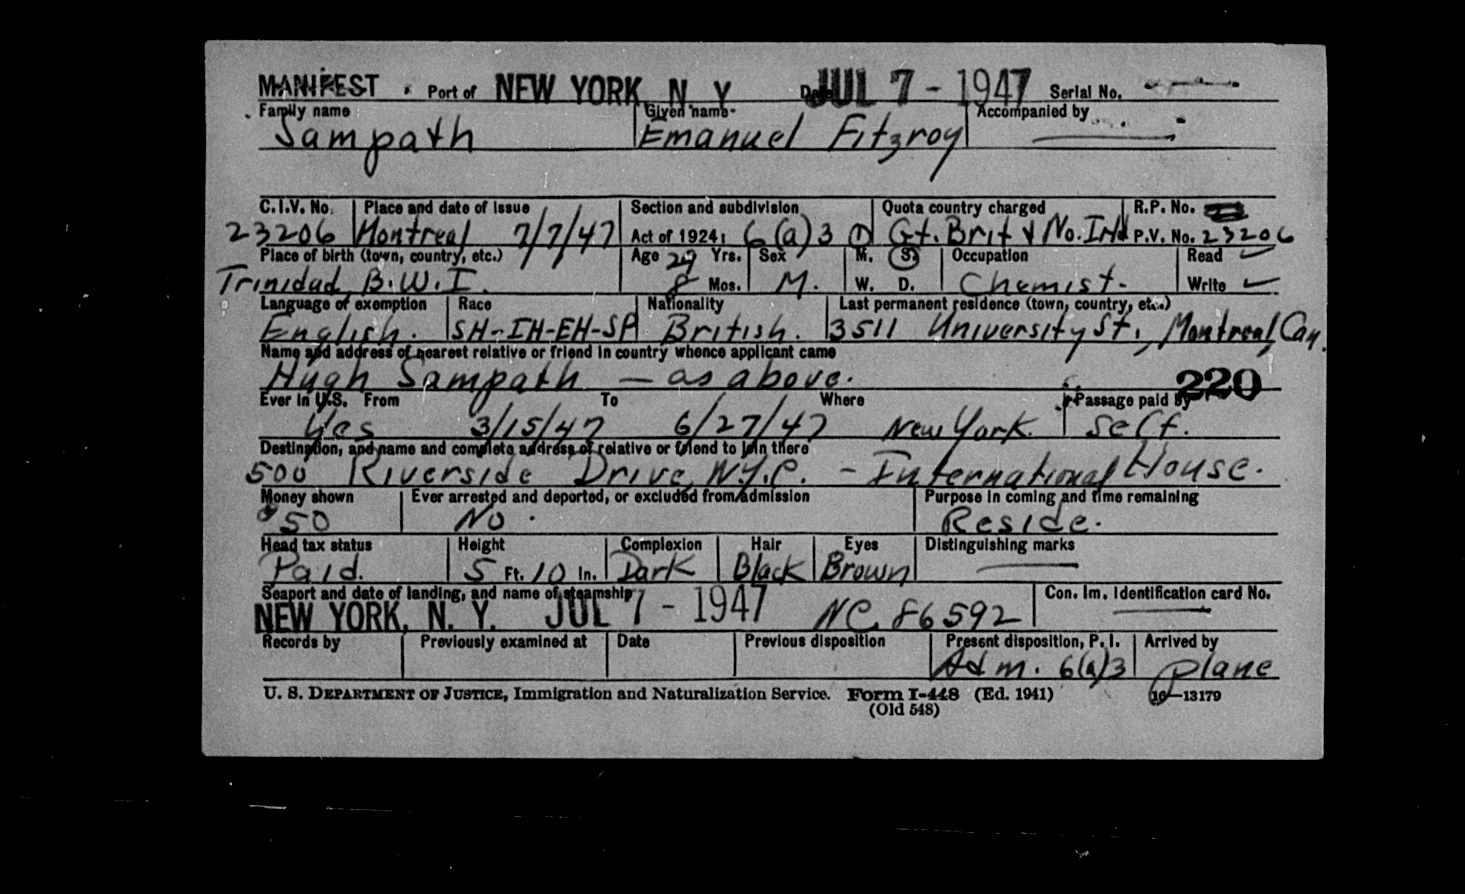 MANIFEST Port of NEW YORK, N. Y. Date JUL 7 - 1947 Serial No.
Family name Given name Accompanied by
Sampath Emanuel Fitzroy
C.I.V. No. Place and date of issue Section and subdivision Quota country charged R.P. No.
23206 Montreal 7/7/47 Act of 1924: 6(a)3 Gt. Brit & No. Ird P.V. No. 23206
Place of birth (town, country, etc.) Age 29 Yrs. Sex M. S. Occupation Read ✓
Trinidad B.W.I. 8 Mos. M. W. D. Chemist. Write ✓
Language of exemption Race Nationality Last permanent residence (town, country, etc.)
English. SH-IH-EH-SP British. 3511 University St., Montreal, Can.
Name and address of nearest relative or friend in country whence applicant came
Hugh Sampath — as above. 220
Ever in U.S. From To Where Passage paid by
Yes 3/15/47 6/27/47 New York. Self.
Destination, and name and complete address of relative or friend to join there
500 Riverside Drive, N.Y.C. - International House.
Money shown Ever arrested and deported, or excluded from admission Purpose in coming and time remaining
$50 No. Reside.
Head tax status Height Complexion Hair Eyes Distinguishing marks
Paid. 5 Ft. 10 In. Dark Black Brown
Seaport and date of landing, and name of steamship Con. Im. Identification card No.
NEW YORK, N. Y. JUL 7 - 1947 NC. 86592
Records by Previously examined at Date Previous disposition Present disposition, P. I. Arrived by
Adm. 6(a)3 Plane
U. S. DEPARTMENT OF JUSTICE, Immigration and Naturalization Service. Form I-448 (Ed. 1941) 16—13179
(Old 548)